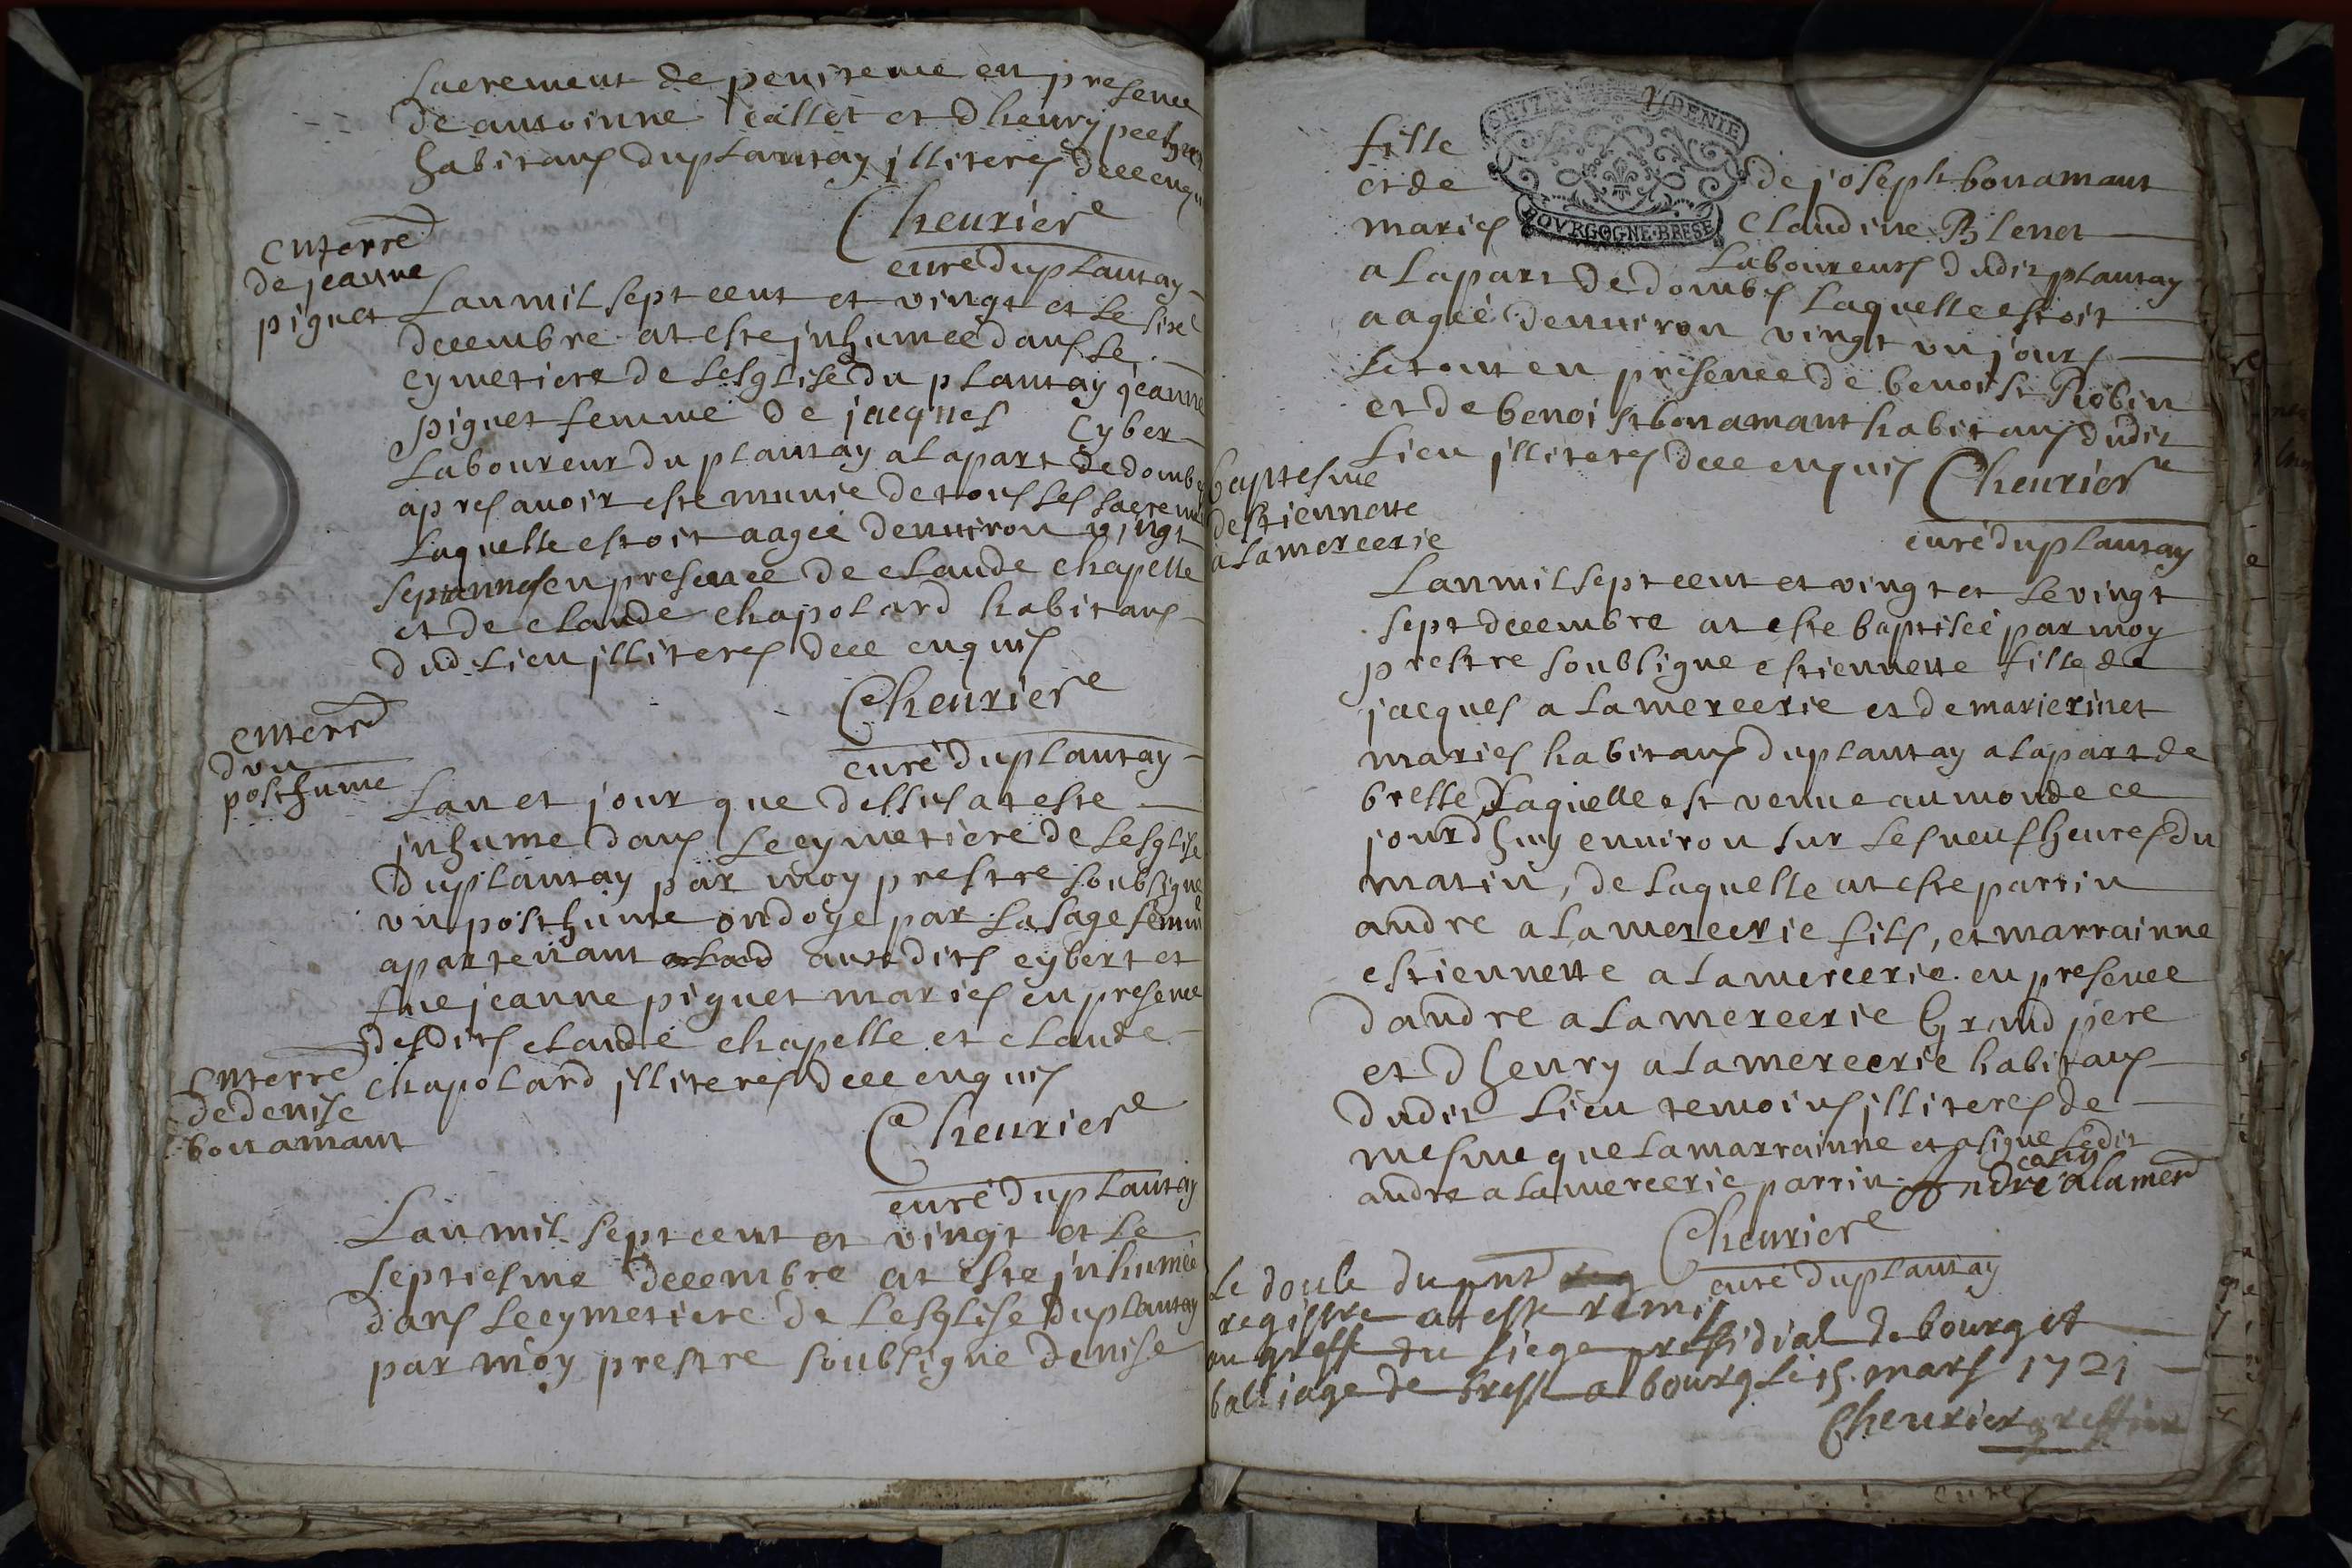 sacrement de penitence en presence
de antoinne callet et dhenry
habitans du plantay illiteres dece enquis
Cheurier
curé du plantay
enterre
de jeanne
piguet
Lan mil sept cent et vingt et le six
decembre at este inhumeé dans le
cymetiere de lesglise du plantay jeanne
piguet femme de jacques cybert
laboureur du plantay a la part de dombes
apres avoir este munie de tous les sacremt
laquelle estoit aageé denuiron vingt
sept annes en presence de claude chapelle
et de claude chapolard habitans
dud. lieu illiteres dece enquis
Cheurier
curé du plantay
enterre
dvn
posthume
Lan et jour que dessus at este
inhume dans le cymetiere de lesglise
du plantay par moy prestre soubsigne
vn posthume ondoye par la sage femme
apartenant auxdits cybert et
fue jeanne piguet maries en presence
desdits claude chapelle et claude
chapolard illiteres dece enquis
Cheurier
curé du plantay
Enterre
de denise
bonamant
Lan mil sept cent et vingt et le
septiesme decembre at este inhumeé
dans le cymetiere de lesglise du plantay
par moy prestre soubsigne denise
SEIZE DENIE
BOVRGOGNE·BRESE
fille de joseph bonamant
et de Claudine Blenet
maries laboureurs dudit plantay
a la part de dombes laquelle estoit
aageé denuiron vingt vn jours
le tout en presence de benoist Robin
et de benoist bonamant habitans dudit
lieu illiteres dece enquis Cheurier
curé du plantay
baptesme
destiennette
alamercerie
Lan mil sept cent et vingt et le vingt
sept decembre at este baptiseé par moy
prestre soubsigne estiennette fille de
jacques alamercerie et de marie rinet
maries habitans du plantay a la part de
bresse laquelle est venue au monde ce
jourdhuy enuiron sur les neuf heures du
matin, de laquelle at este parrin
andre alamercerie fils, et marrainne
estiennette alamercerie en presence
dandre alamercerie Grand pere
et dhenry alamercerie habitans
dudit lieu temoins illiteres de
mesme que la marrainne et a signe ledit
andre alamercerie parrin. Andre alamer
Cheurier
curé du plantay
Le double du pnt
registre at este remis
au greffe du siege presidial de bourg et
balliage de bresse a bourg le 15. mars 1721
Cheurier greffier